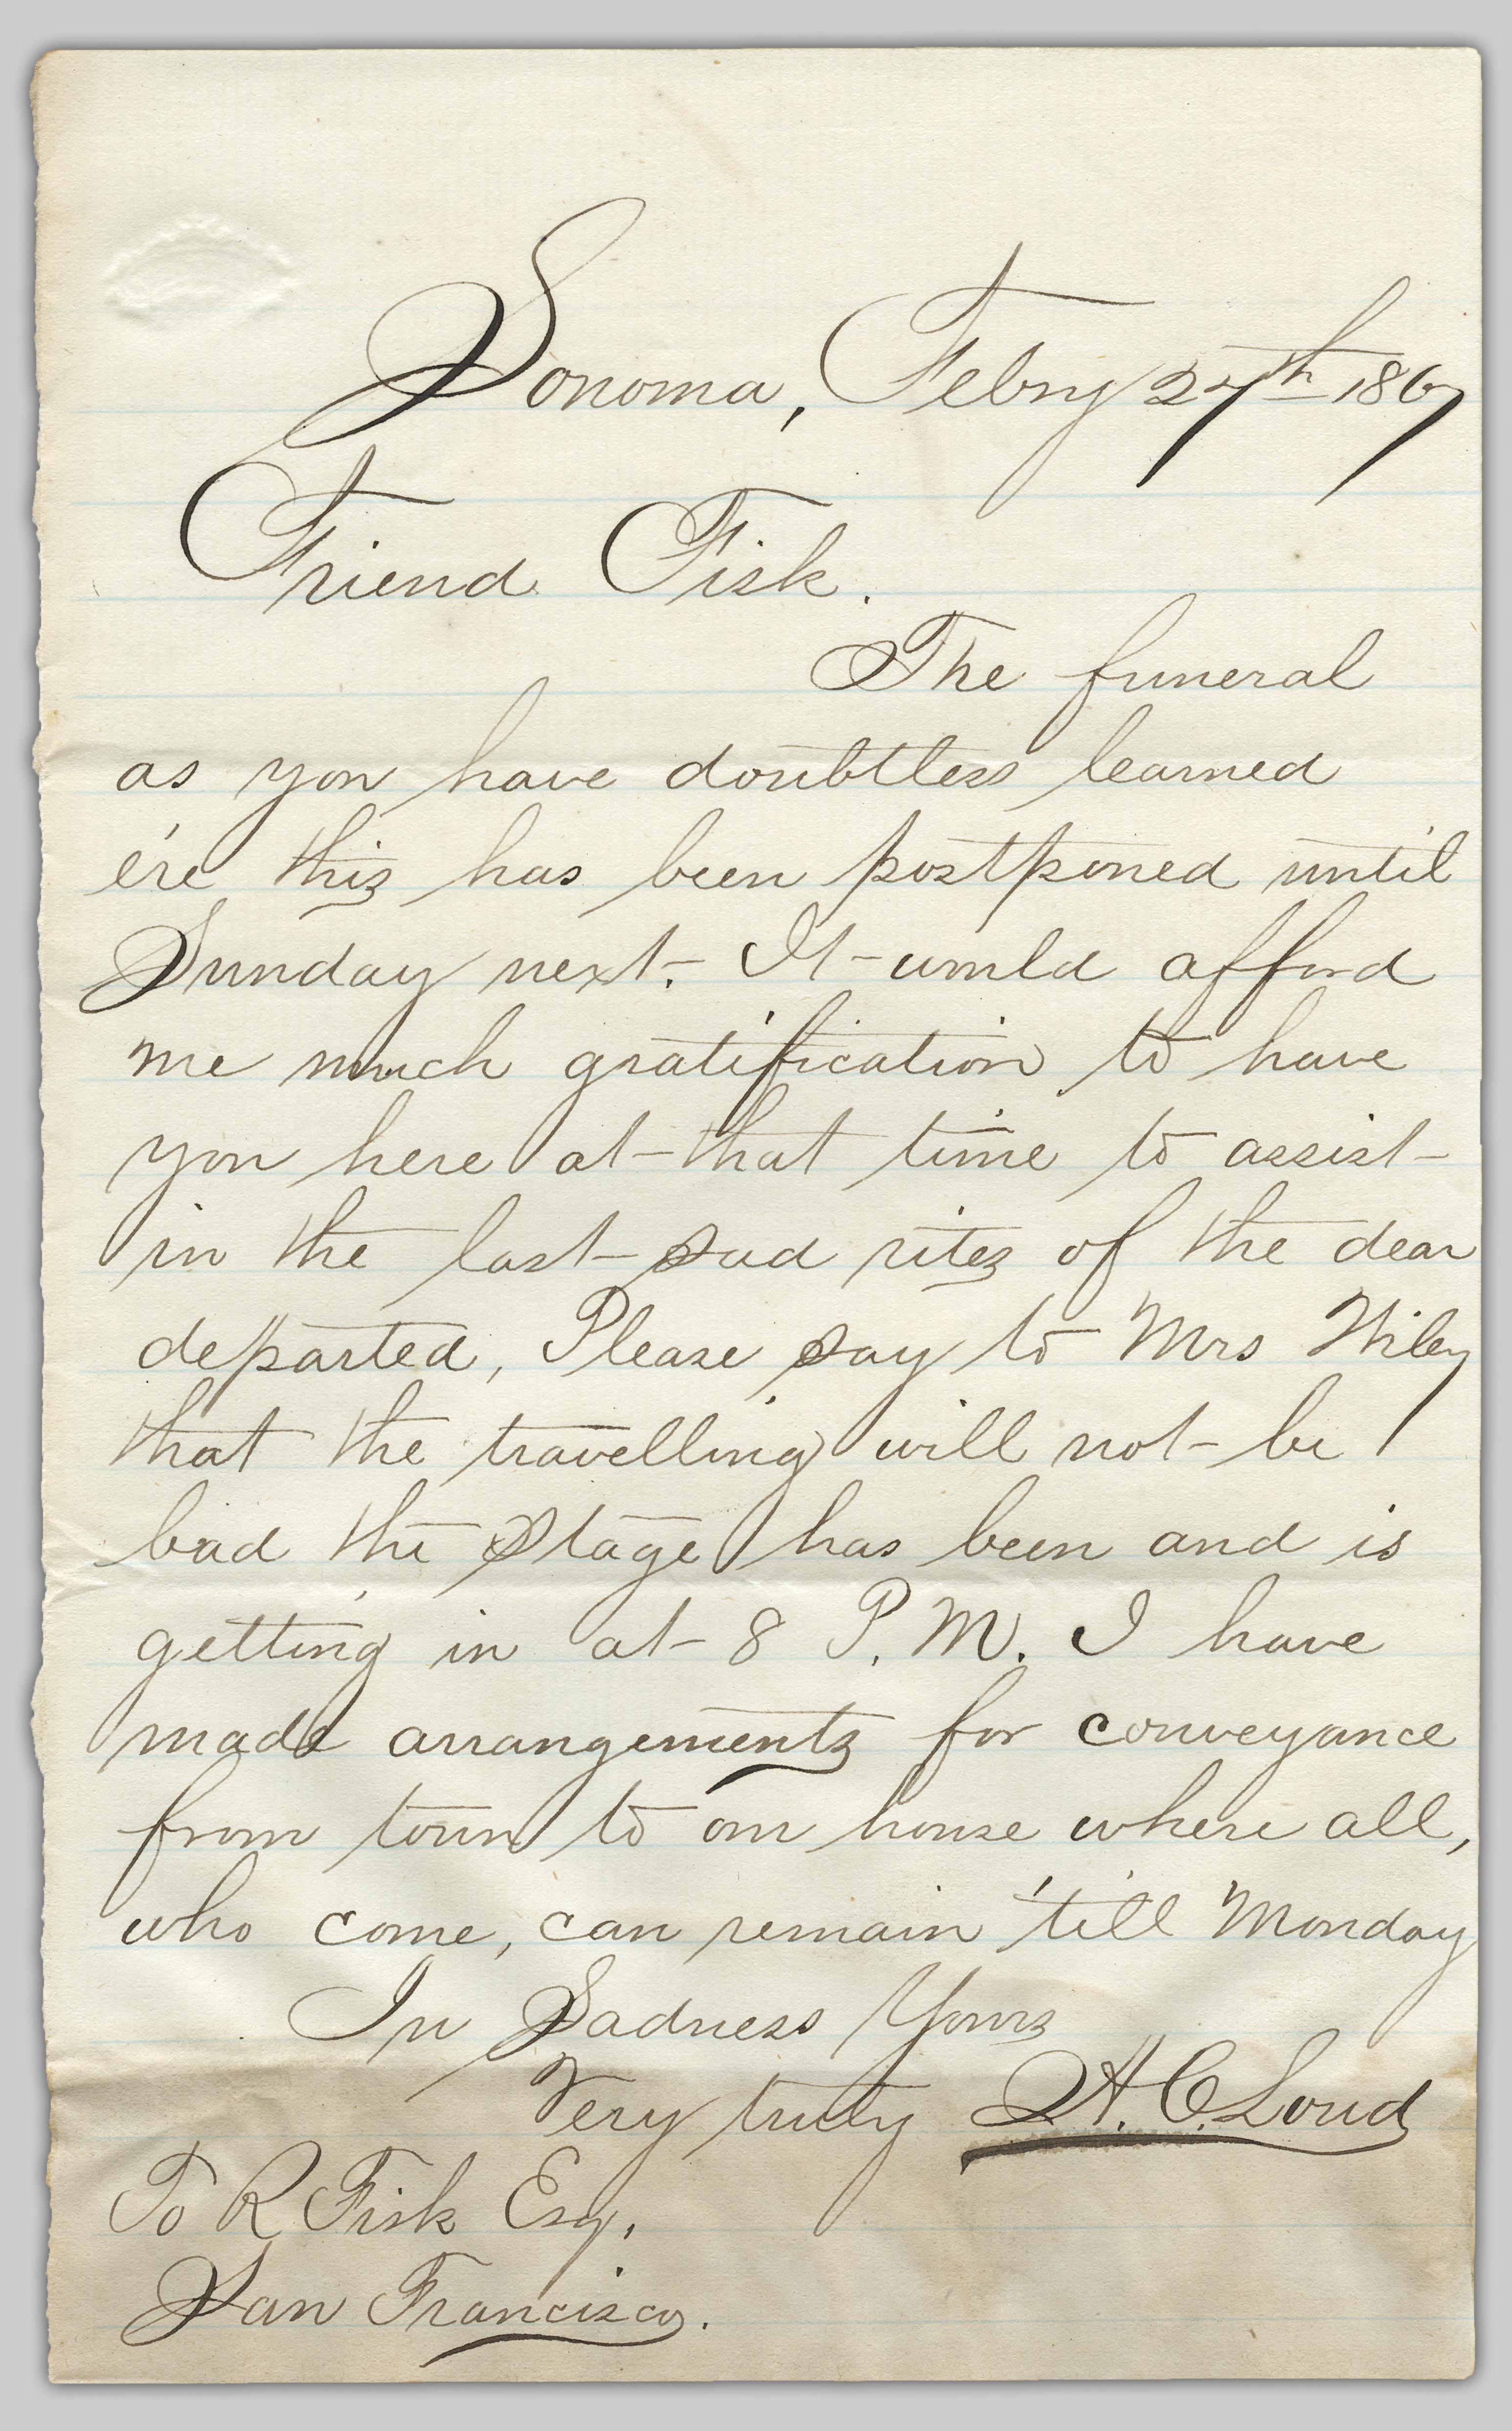 Sonoma, Febry 27th 1867
Friend Fisk.
The funeral
as you have doubtless learned
e're this has been postponed until
Sunday next. It would afford
me much gratification to have
you here at that time to assist
in the last sad rites of the dear
departed, Please say to Mrs Wiley
that the travelling will not be
bad the stage has been and is
getting in at 8 P.M. I have
made arrangements for conveyance
from town to our house where all,
who come, can remain 'till Monday
In Sadness Yours
Very truly H. C. Loud
To R Fisk Esq.
San Francisco.